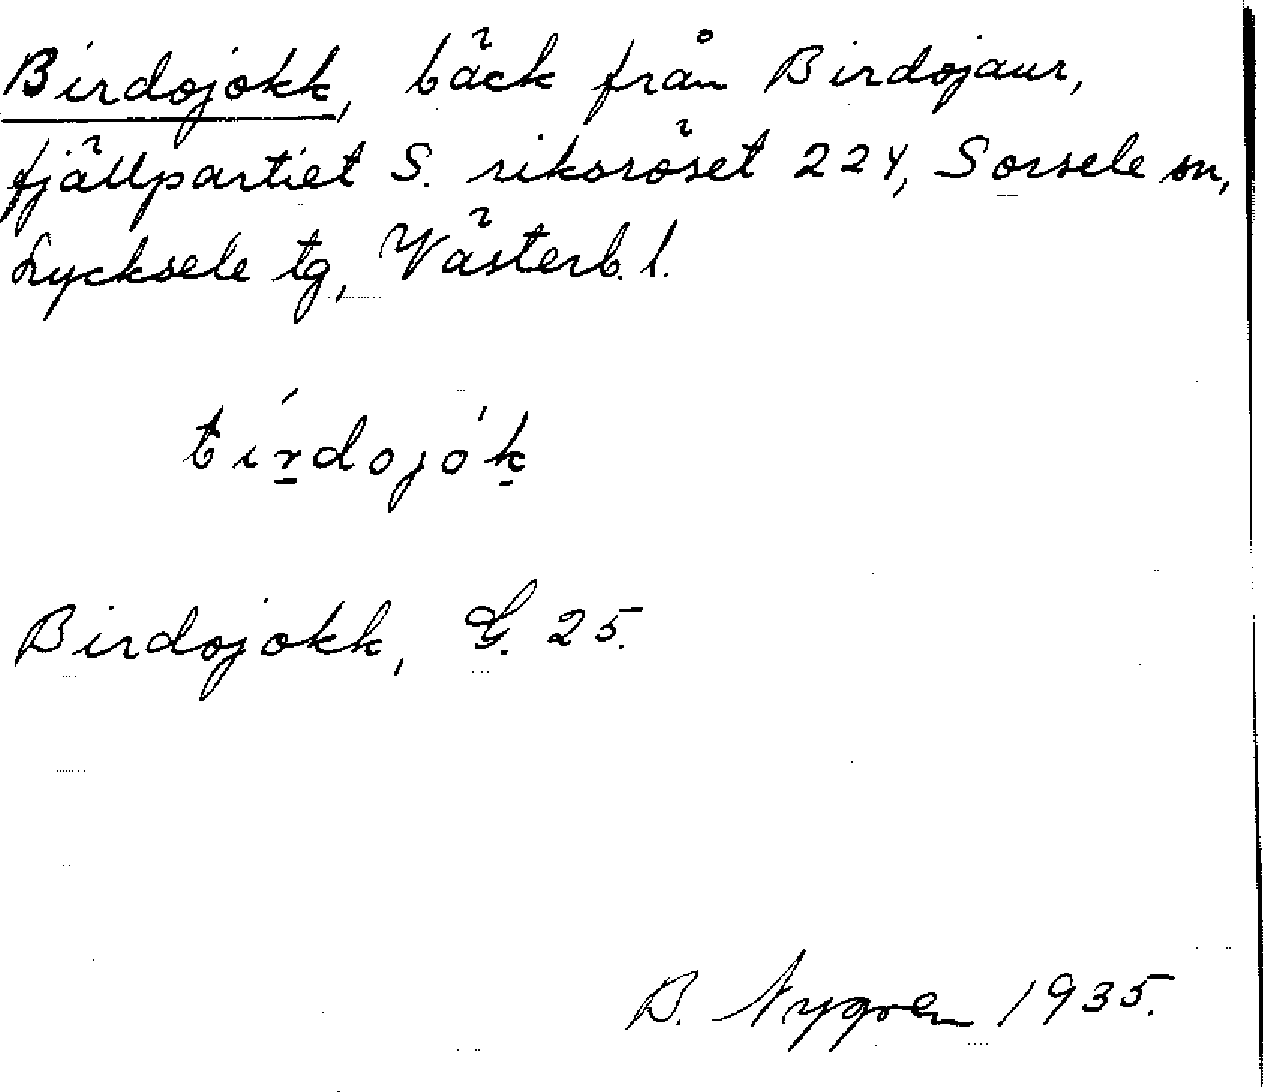 Birdojokk, bäck från Birdojaur,
fjällpartiet S. riksröset 224, Sorsele sn,
Lycksele tg, Västerb. l.
Birdojokk, G. 25.
B. Nygren 1935.